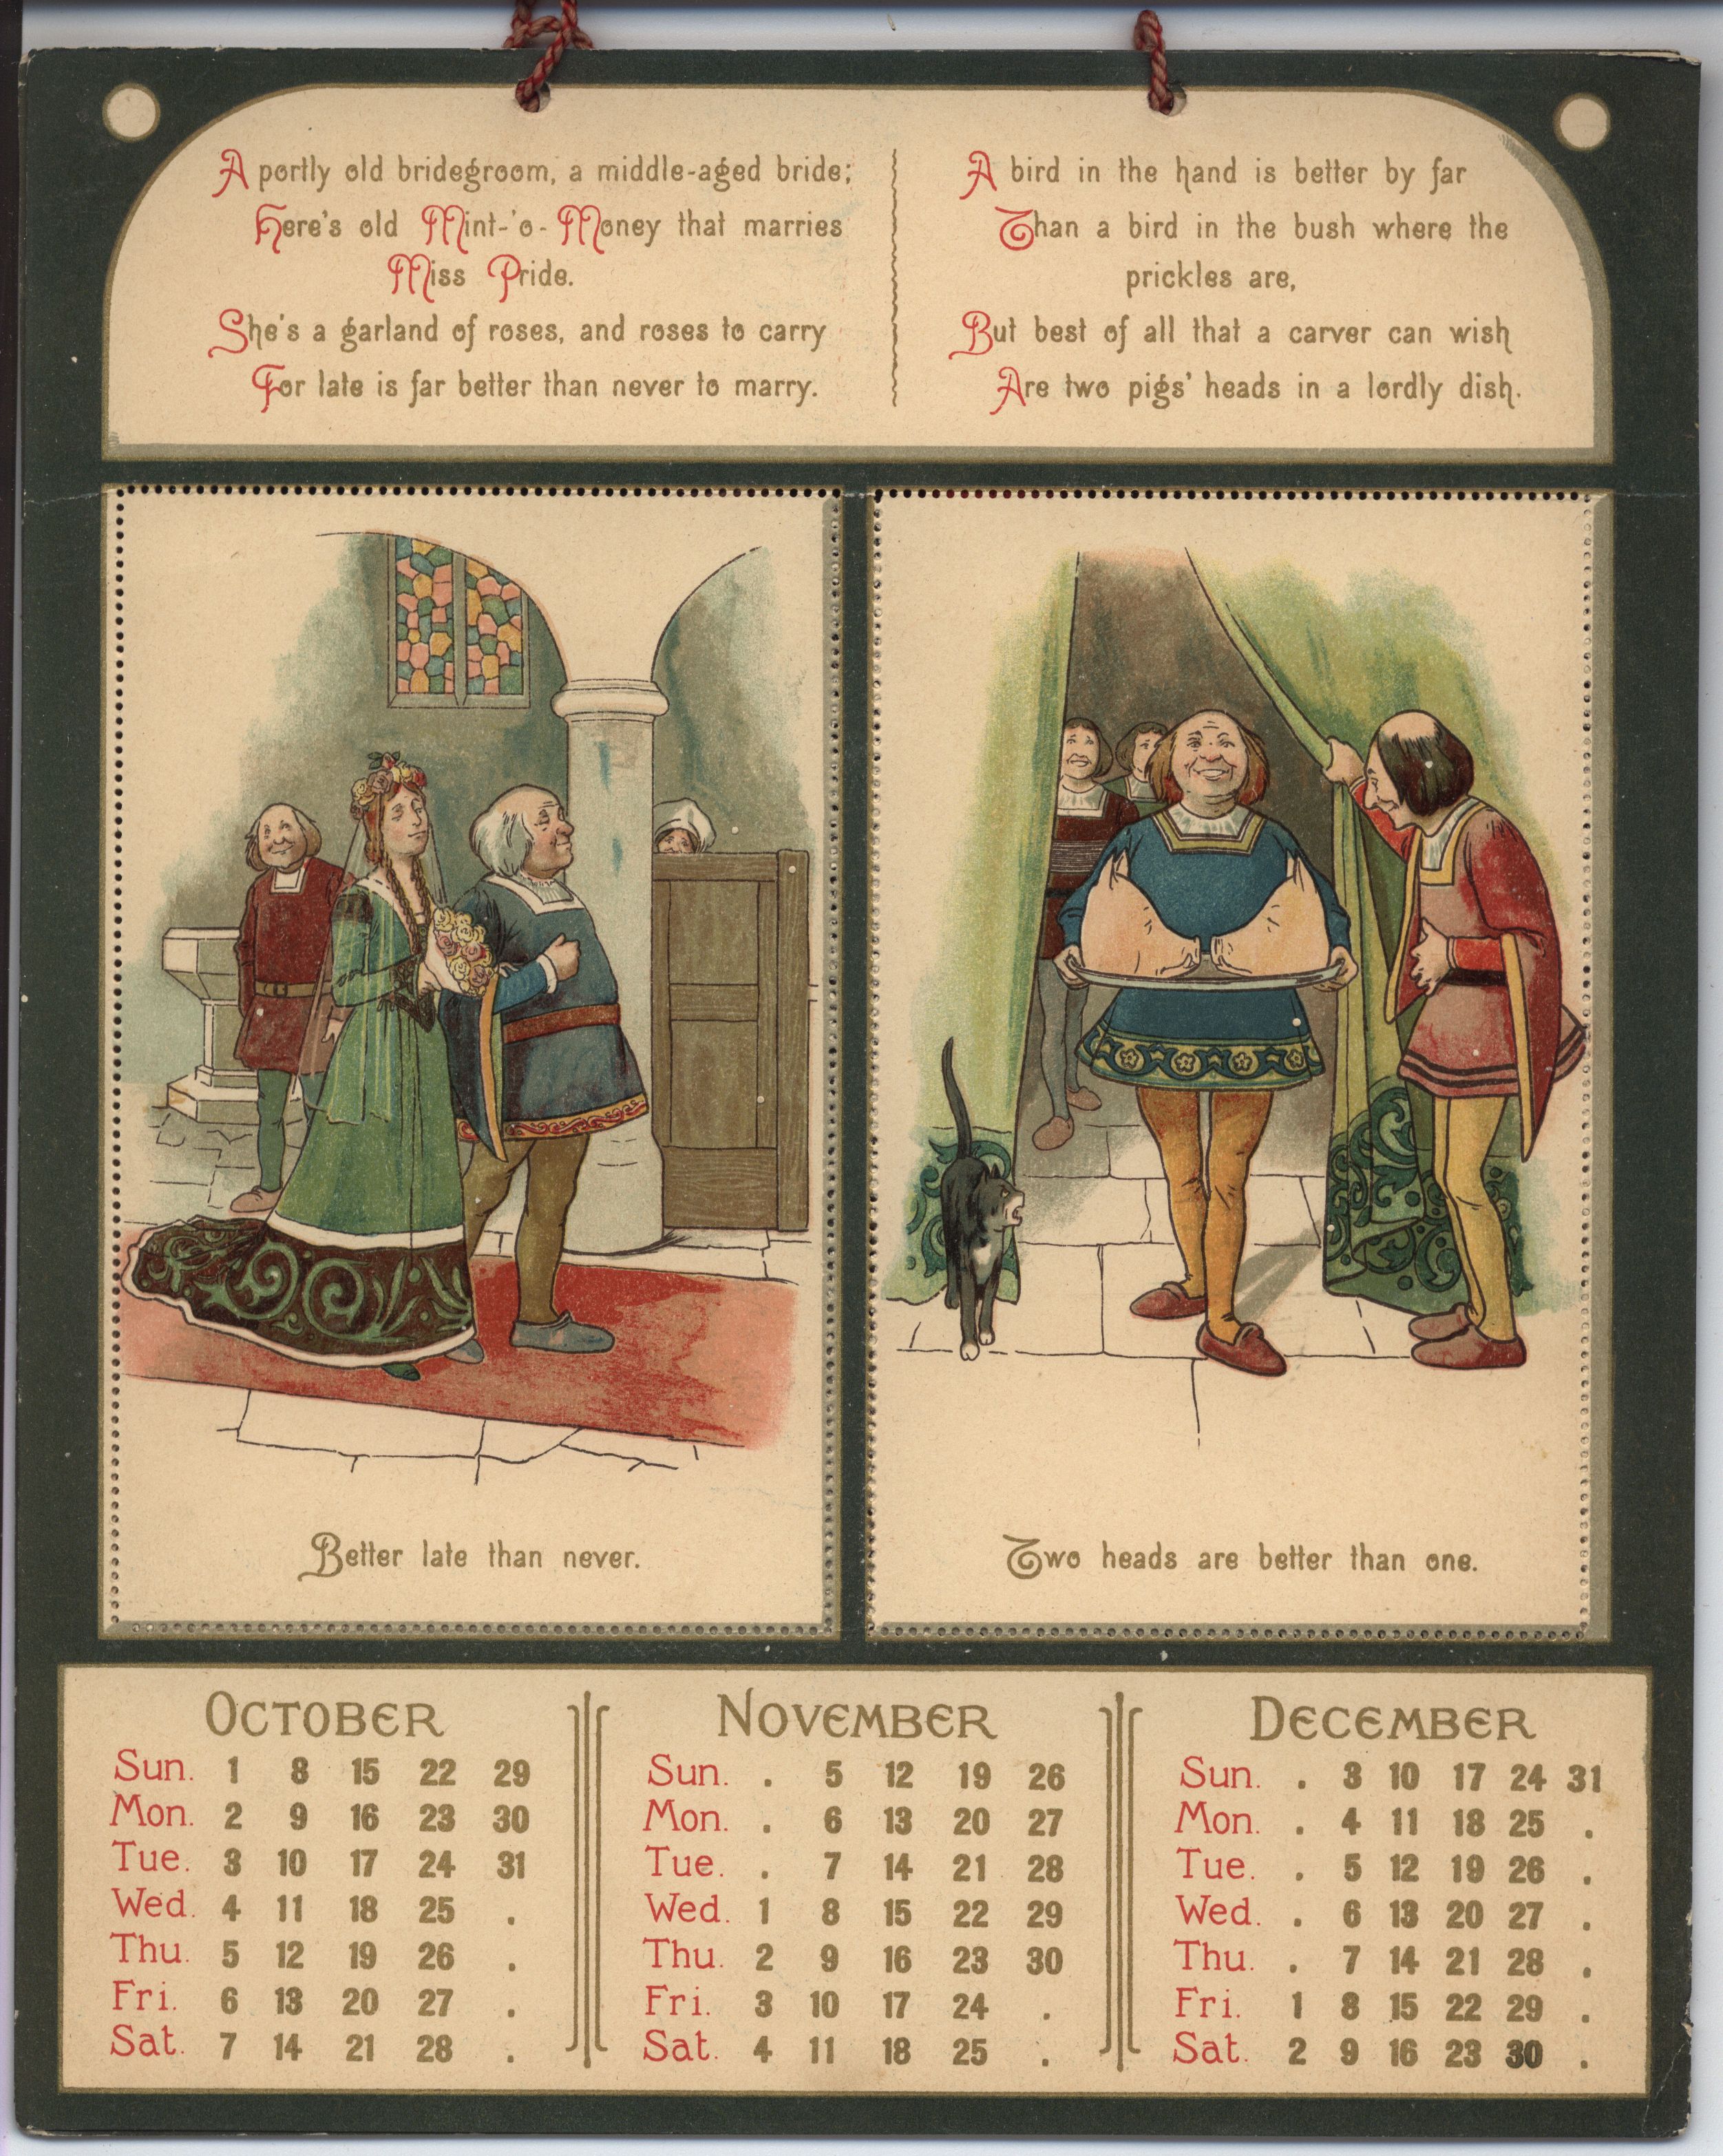 A portly old bridegroom, a middle-aged bride;
Here's old Mint-'o-Money that marries
Miss Pride.
She's a garland of roses, and roses to carry
For late is far better than never to marry.
A bird in the hand is better by far
Than a bird in the bush where the
prickles are,
But best of all that a carver can wish
Are two pigs' heads in a lordly dish.
Better late than never.
Two heads are better than one.
OCTOBER
Sun. 1 8 15 22 29
Mon. 2 9 16 23 30
Tue. 3 10 17 24 31
Wed. 4 11 18 25 .
Thu. 5 12 19 26 .
Fri. 6 13 20 27 .
Sat. 7 14 21 28 .
NOVEMBER
Sun. . 5 12 19 26
Mon. . 6 13 20 27
Tue. . 7 14 21 28
Wed. 1 8 15 22 29
Thu. 2 9 16 23 30
Fri. 3 10 17 24 .
Sat. 4 11 18 25 .
DECEMBER
Sun. . 3 10 17 24 31
Mon. . 4 11 18 25 .
Tue. . 5 12 19 26 .
Wed. . 6 13 20 27 .
Thu. . 7 14 21 28 .
Fri. 1 8 15 22 29 .
Sat. 2 9 16 23 30 .